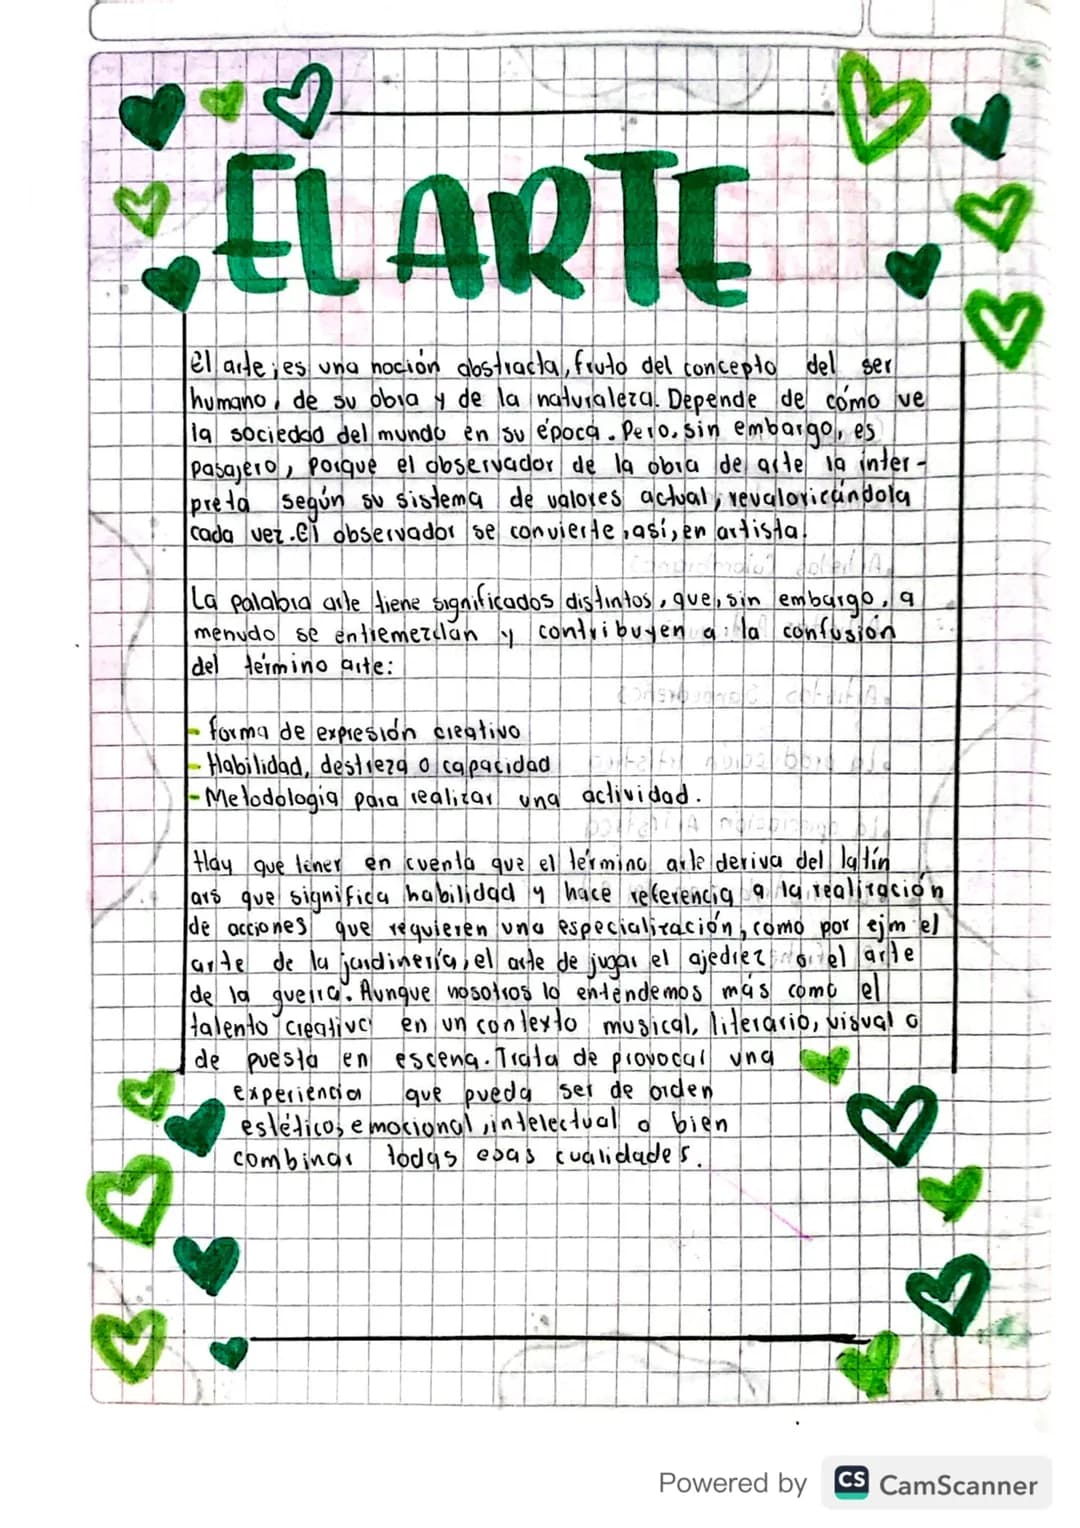 EL ARTE
El arte; es una noción abstracta, fruto del concepto del ser
humano, de su obra y de la naturaleza. Depende de cómo ve
la sociedad del mundo en su época. Pero, sin embargo, es
pasajero, porque el observador de la obra de arte la inter-
preta según su sistema de valores actual, revaloricándola
cada vez. El observador se convierte, así, en artista.
La palabra arte tiene significados distintos, que, sin embargo, a
menudo se entremezclan y contribuyen a la confusión
del término arte:
- forma de expresión creativo
- Habilidad, destreza o capacidad
- Metodología para realizar una actividad.
Hay que tener en cuenta que el término arte deriva del latín
ars que significa habilidad y hace referencia a la realización
de acciones que requieren una especialización, como por ejm el
arte de la jardinería, el arte de jugar el ajedrez o el arte
de la guerra. Aunque nosotros lo entendemos más como el
talento creativo en un contexto musical, literario, visual o
de puesta en escena. Trata de provocar una
experiencia que pueda ser de orden
estético, emocional, intelectual o bien
combinar todas esas cualidades.
Powered by CS CamScanner